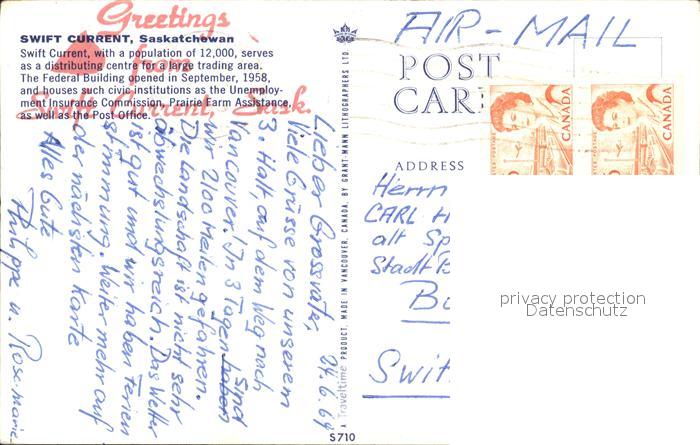 Greetings
from
Swift Current, Sask.
SWIFT CURRENT, Saskatchewan
Swift Current, with a population of 12,000, serves
as a distributing centre for a large trading area.
The Federal Building opened in September, 1958,
and houses such civic institutions as the Unemploy-
ment Insurance Commission, Prairie Farm Assistance,
as well as the Post Office.
24.6.69
Lieber Grossvater,
Viele Grüsse von unserem
3. Halt auf dem Weg nach
Vancouver. In 3 Tagen sind
wir 2100 Meilen gefahren.
Die Landschaft ist nicht sehr
abwechslungsreich. Das Wetter
ist gut und wir haben Ferien
stimmung. Weiter mehr auf
der nächsten Karte
Alles Gute
Philippe u. Rosemarie
A Traveltime PRODUCT. MADE IN VANCOUVER, CANADA, BY GRANT-MANN LITHOGRAPHERS LTD.
S710
AIR-MAIL
POST
CAR
ADDRESS
CANADA
CANADA
Herrn
CARL H
alt Sp
Stadt B
Bu
Swit
privacy protection
Datenschutz